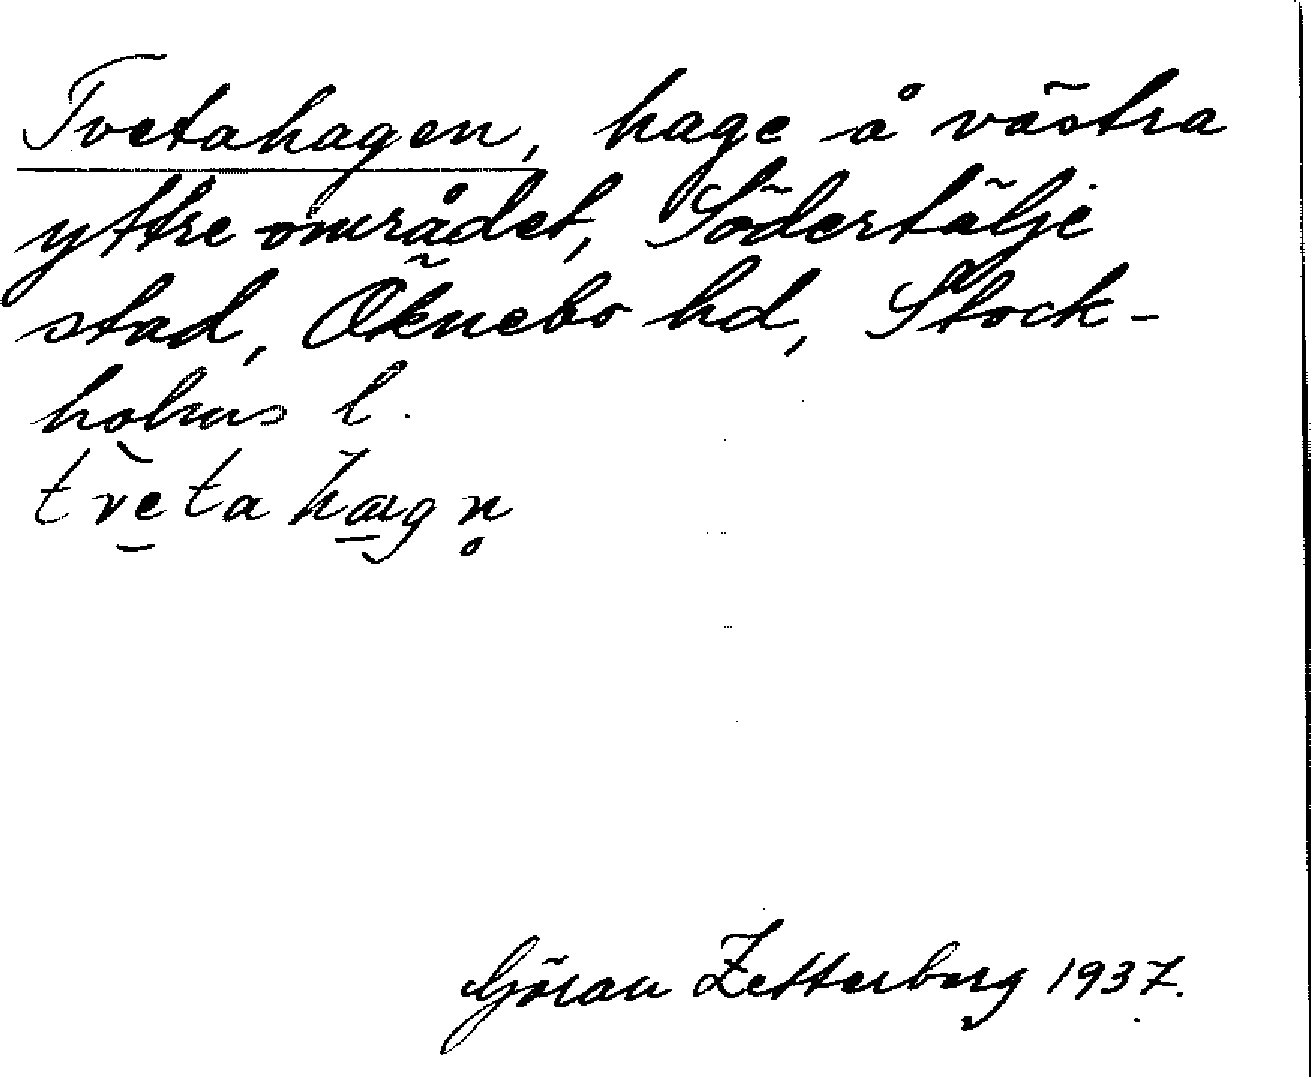 Tvetahagen, hage å västra
yttre området, Södertälje
stad, Öknebo hd, Stock-
holms l.
tvèta hagn̥
Göran Zetterberg 1937.